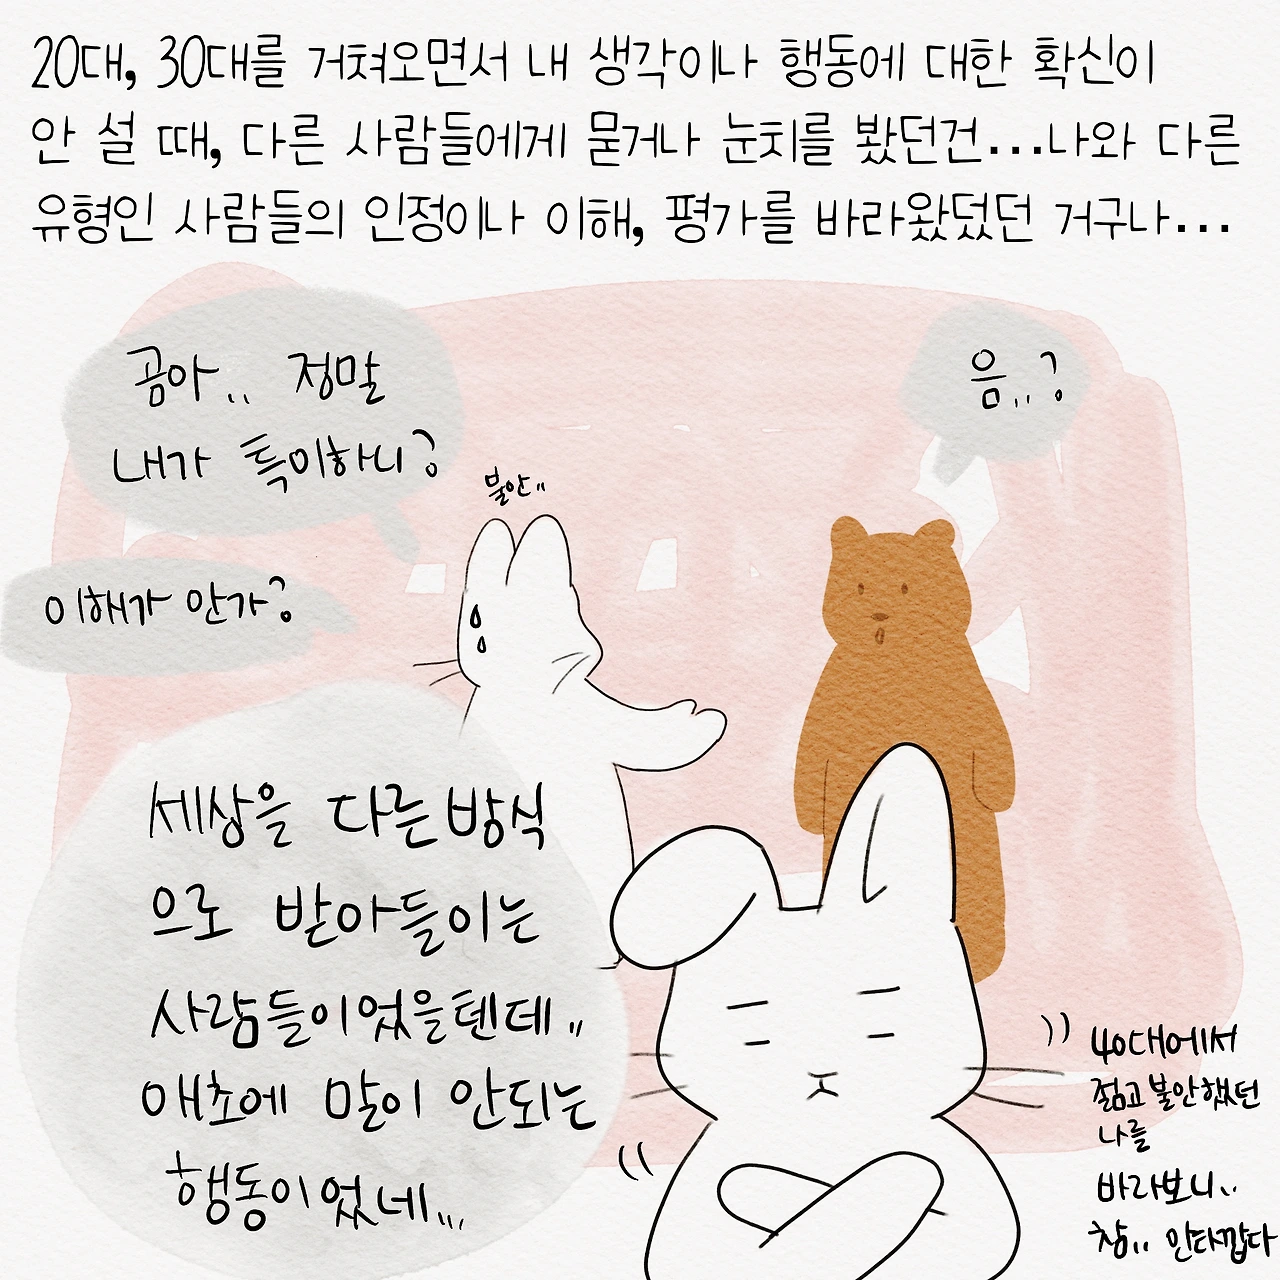 20대, 30대를 거쳐오면서 내 생각이나 행동에 대한 확신이
안 설 때, 다른 사람들에게 묻거나 눈치를 봤던건...나와 다른
유형인 사람들의 인정이나 이해, 평가를 바라왔덨던 거구나...
곰아.. 정말
내가 특이하니?
음..?
불안..
이해가 안가?
세상을 다른방식
으로 받아들이는
사람들이었을텐데..
애초에 말이 안되는
행동이었네...
40대에서
젊고 불안했던
나를
바라보니..
참.. 안타깝다